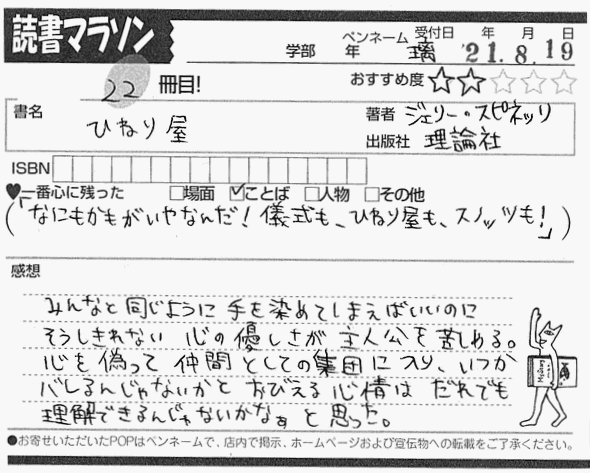 読書マラソン
学部 年 ペンネーム 璃 受付日 '21.8.19 年 月 日
22冊目! おすすめ度 ★★☆☆☆
書名 ひねり屋
著者 ジェリー・スピネッリ
出版社 理論社
ISBN
♥一番心に残った □場面 ☑ことば □人物 □その他
(「なにもかもがいやなんだ!儀式も、ひねり屋も、スノッツも!」)
感想
みんなと同じように手を染めてしまえばいいのに
そうしきれない 心の優しさが 主人公を苦しめる。
心を偽って 仲間としての集団に入り、いつか
バレるんじゃないかと おびえる心情は だれでも
理解できるんじゃないかなぁ と思った。
●お寄せいただいたPOPはペンネームで、店内で掲示、ホームページおよび宣伝物への転載をご了承ください。